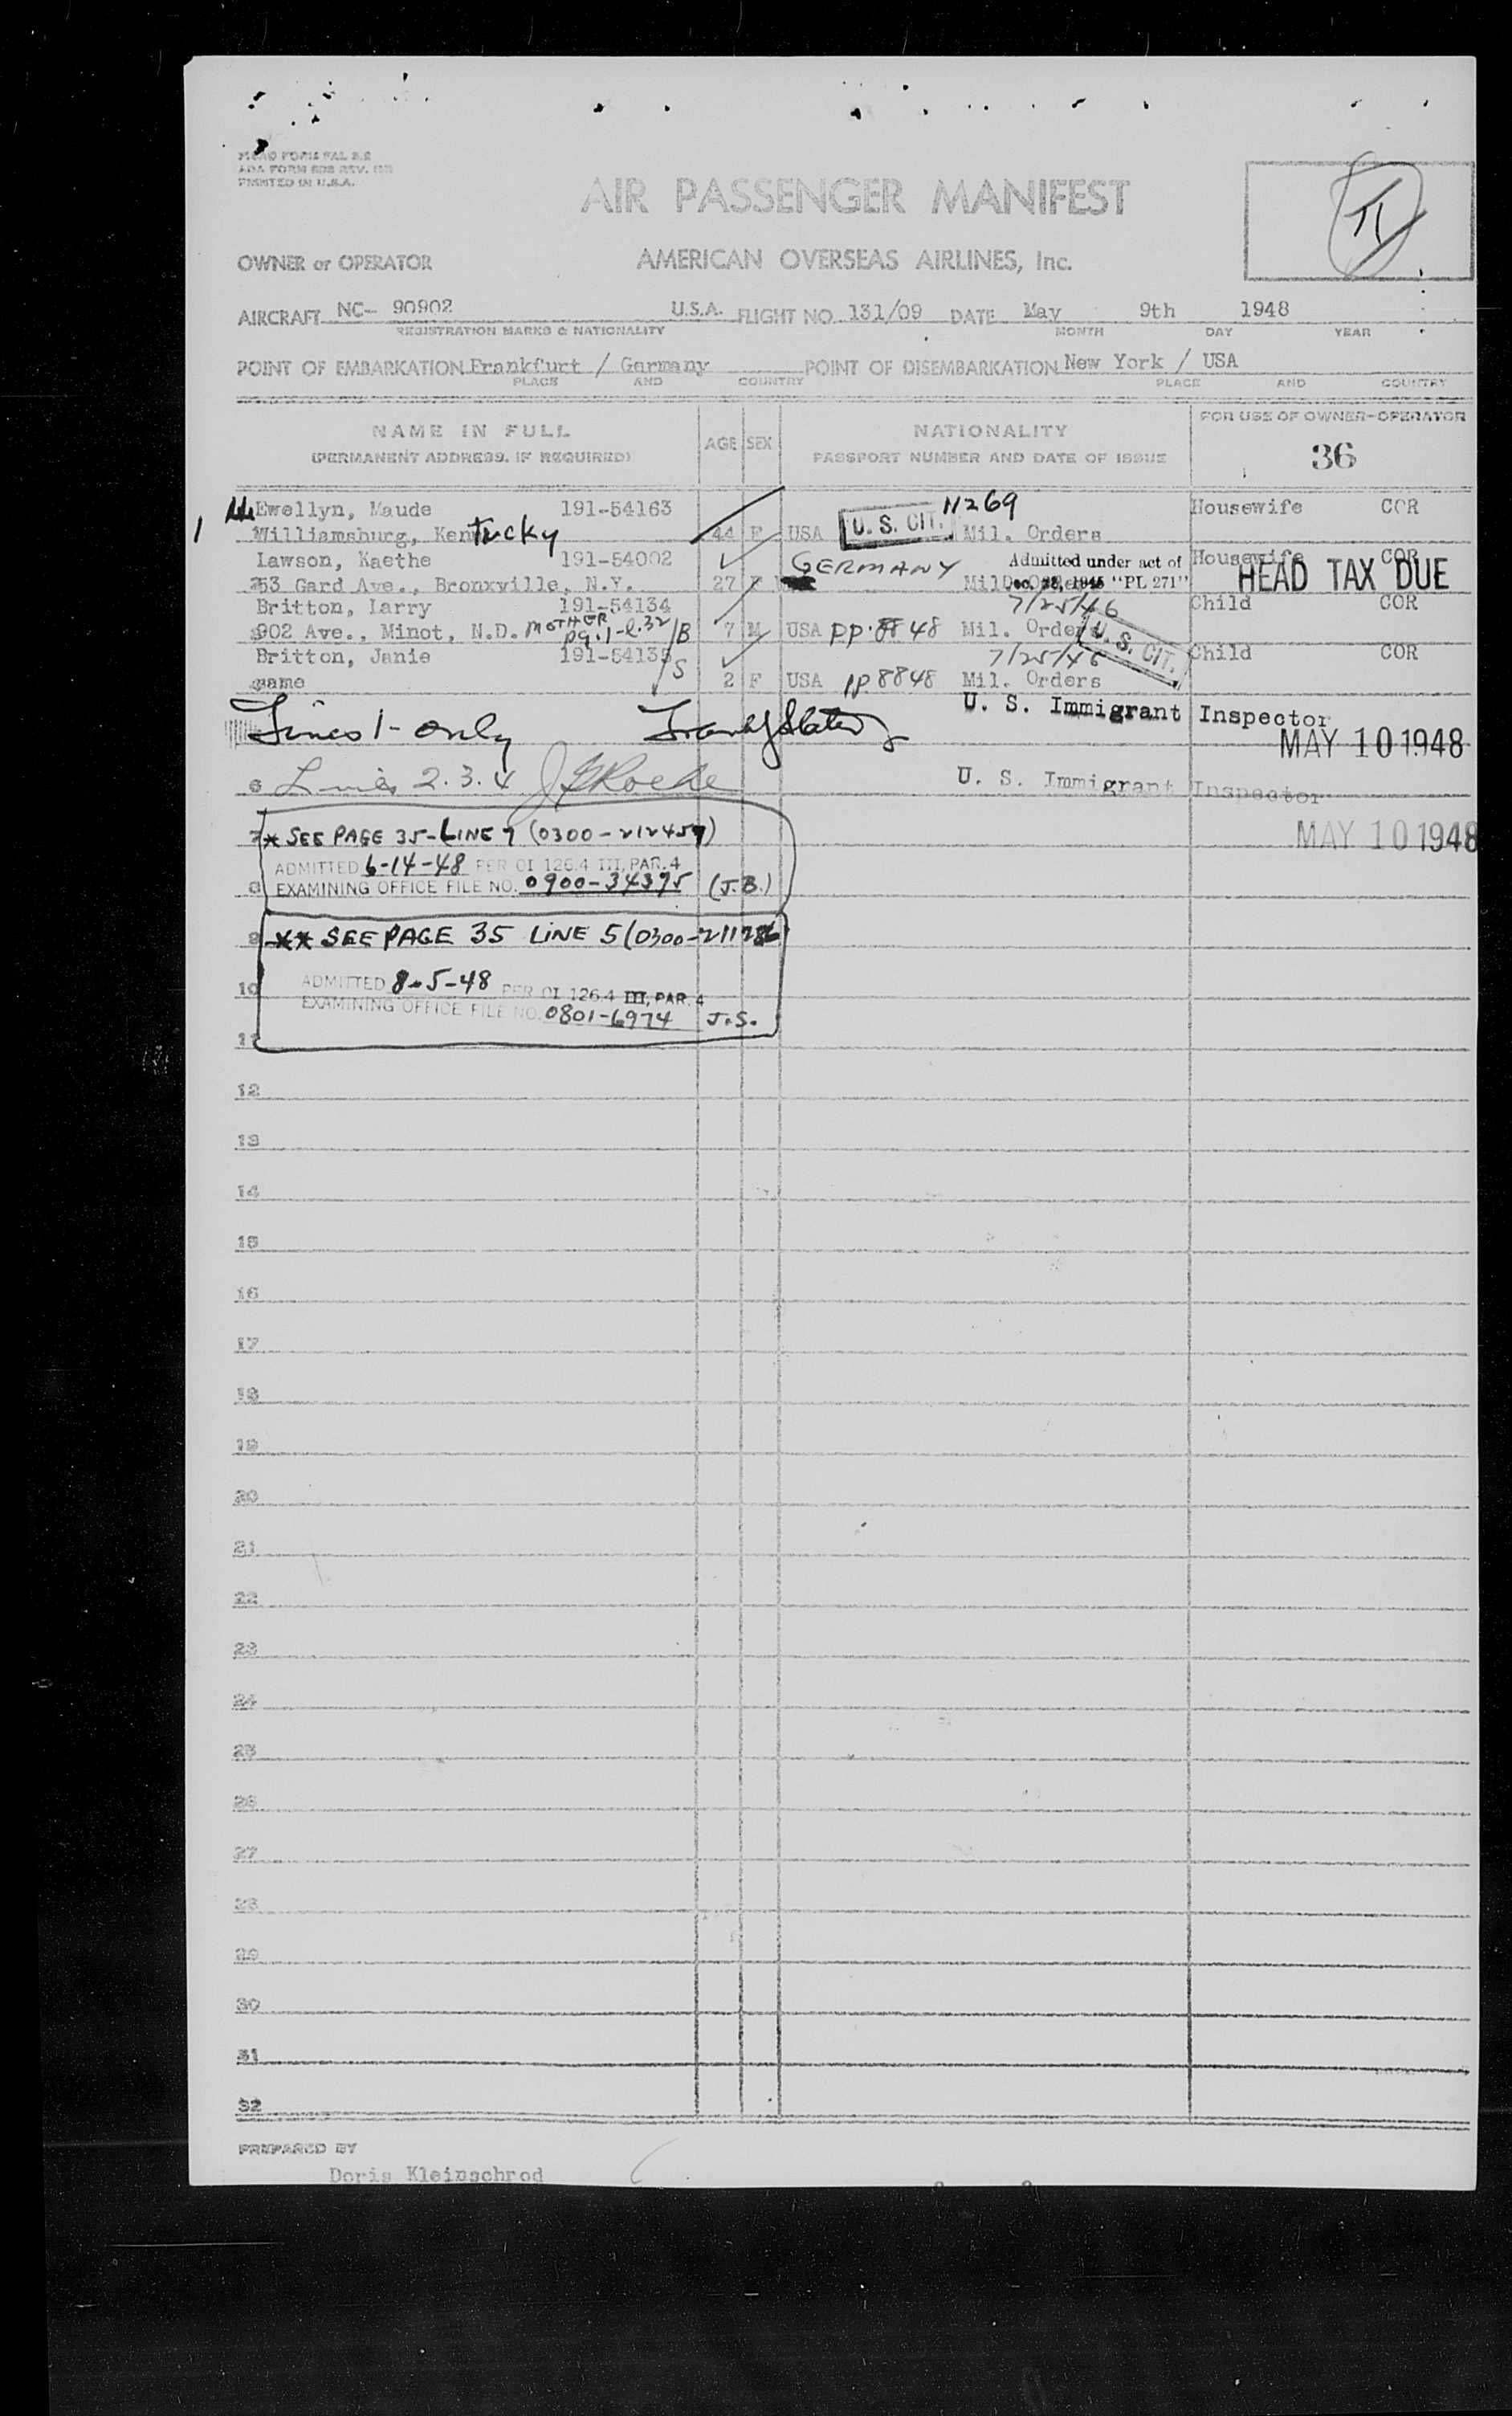 PRINTED IN U.S.A.
AIR PASSENGER MANIFEST
OWNER or OPERATOR AMERICAN OVERSEAS AIRLINES, Inc.
AIRCRAFT NC- 90902 U.S.A. FLIGHT NO. 131/09 DATE May 9th 1948
REGISTRATION MARKS & NATIONALITY MONTH DAY YEAR
POINT OF EMBARKATION Frankfurt / Germany POINT OF DISEMBARKATION New York / USA
PLACE AND COUNTRY PLACE AND COUNTRY
NAME IN FULL AGE SEX NATIONALITY FOR USE OF OWNER-OPERATOR
(PERMANENT ADDRESS, IF REQUIRED) PASSPORT NUMBER AND DATE OF ISSUE 36
Ewellyn, Maude 191-54163 11269 Housewife COR
1 Williamsburg, Kentucky 44 F USA U. S. CIT. Mil. Orders
Lawson, Kaethe 191-54002 GERMANY Admitted under act of Housewife COR
53 Gard Ave., Bronxville, N.Y. 27 F Dec. 28, 1945 "PL 271" HEAD TAX DUE
Britton, Larry 191-54134 7/25/46 Child COR
902 Ave., Minot, N.D. MOTHER pg.1-l.32 /B 7 M USA pp. 8848 Mil. Orders U. S. CIT.
Britton, Janie 191-54135 7/25/46 Child COR
same /S 2 F USA pp 8848 Mil. Orders
U. S. Immigrant Inspector
Lines 1- only MAY 10 1948
6 Lines 2.3.4 U. S. Immigrant Inspector
7 * SEE PAGE 35-LINE 7 (0300-212457) MAY 10 1948
ADMITTED 6-14-48 PER OI 126.4 III, PAR. 4
8 EXAMINING OFFICE FILE NO. 0900-34375 (J.B.)
9 ** SEE PAGE 35 LINE 5 (0300-211286)
10 ADMITTED 8-5-48 PER OI 126.4 III, PAR. 4
EXAMINING OFFICE FILE NO. 0801-6974 J.S.
11
12
13
14
15
16
17
18
19
20
21
22
23
24
25
26
27
28
29
30
31
32
PREPARED BY
Doris Kleinschrod